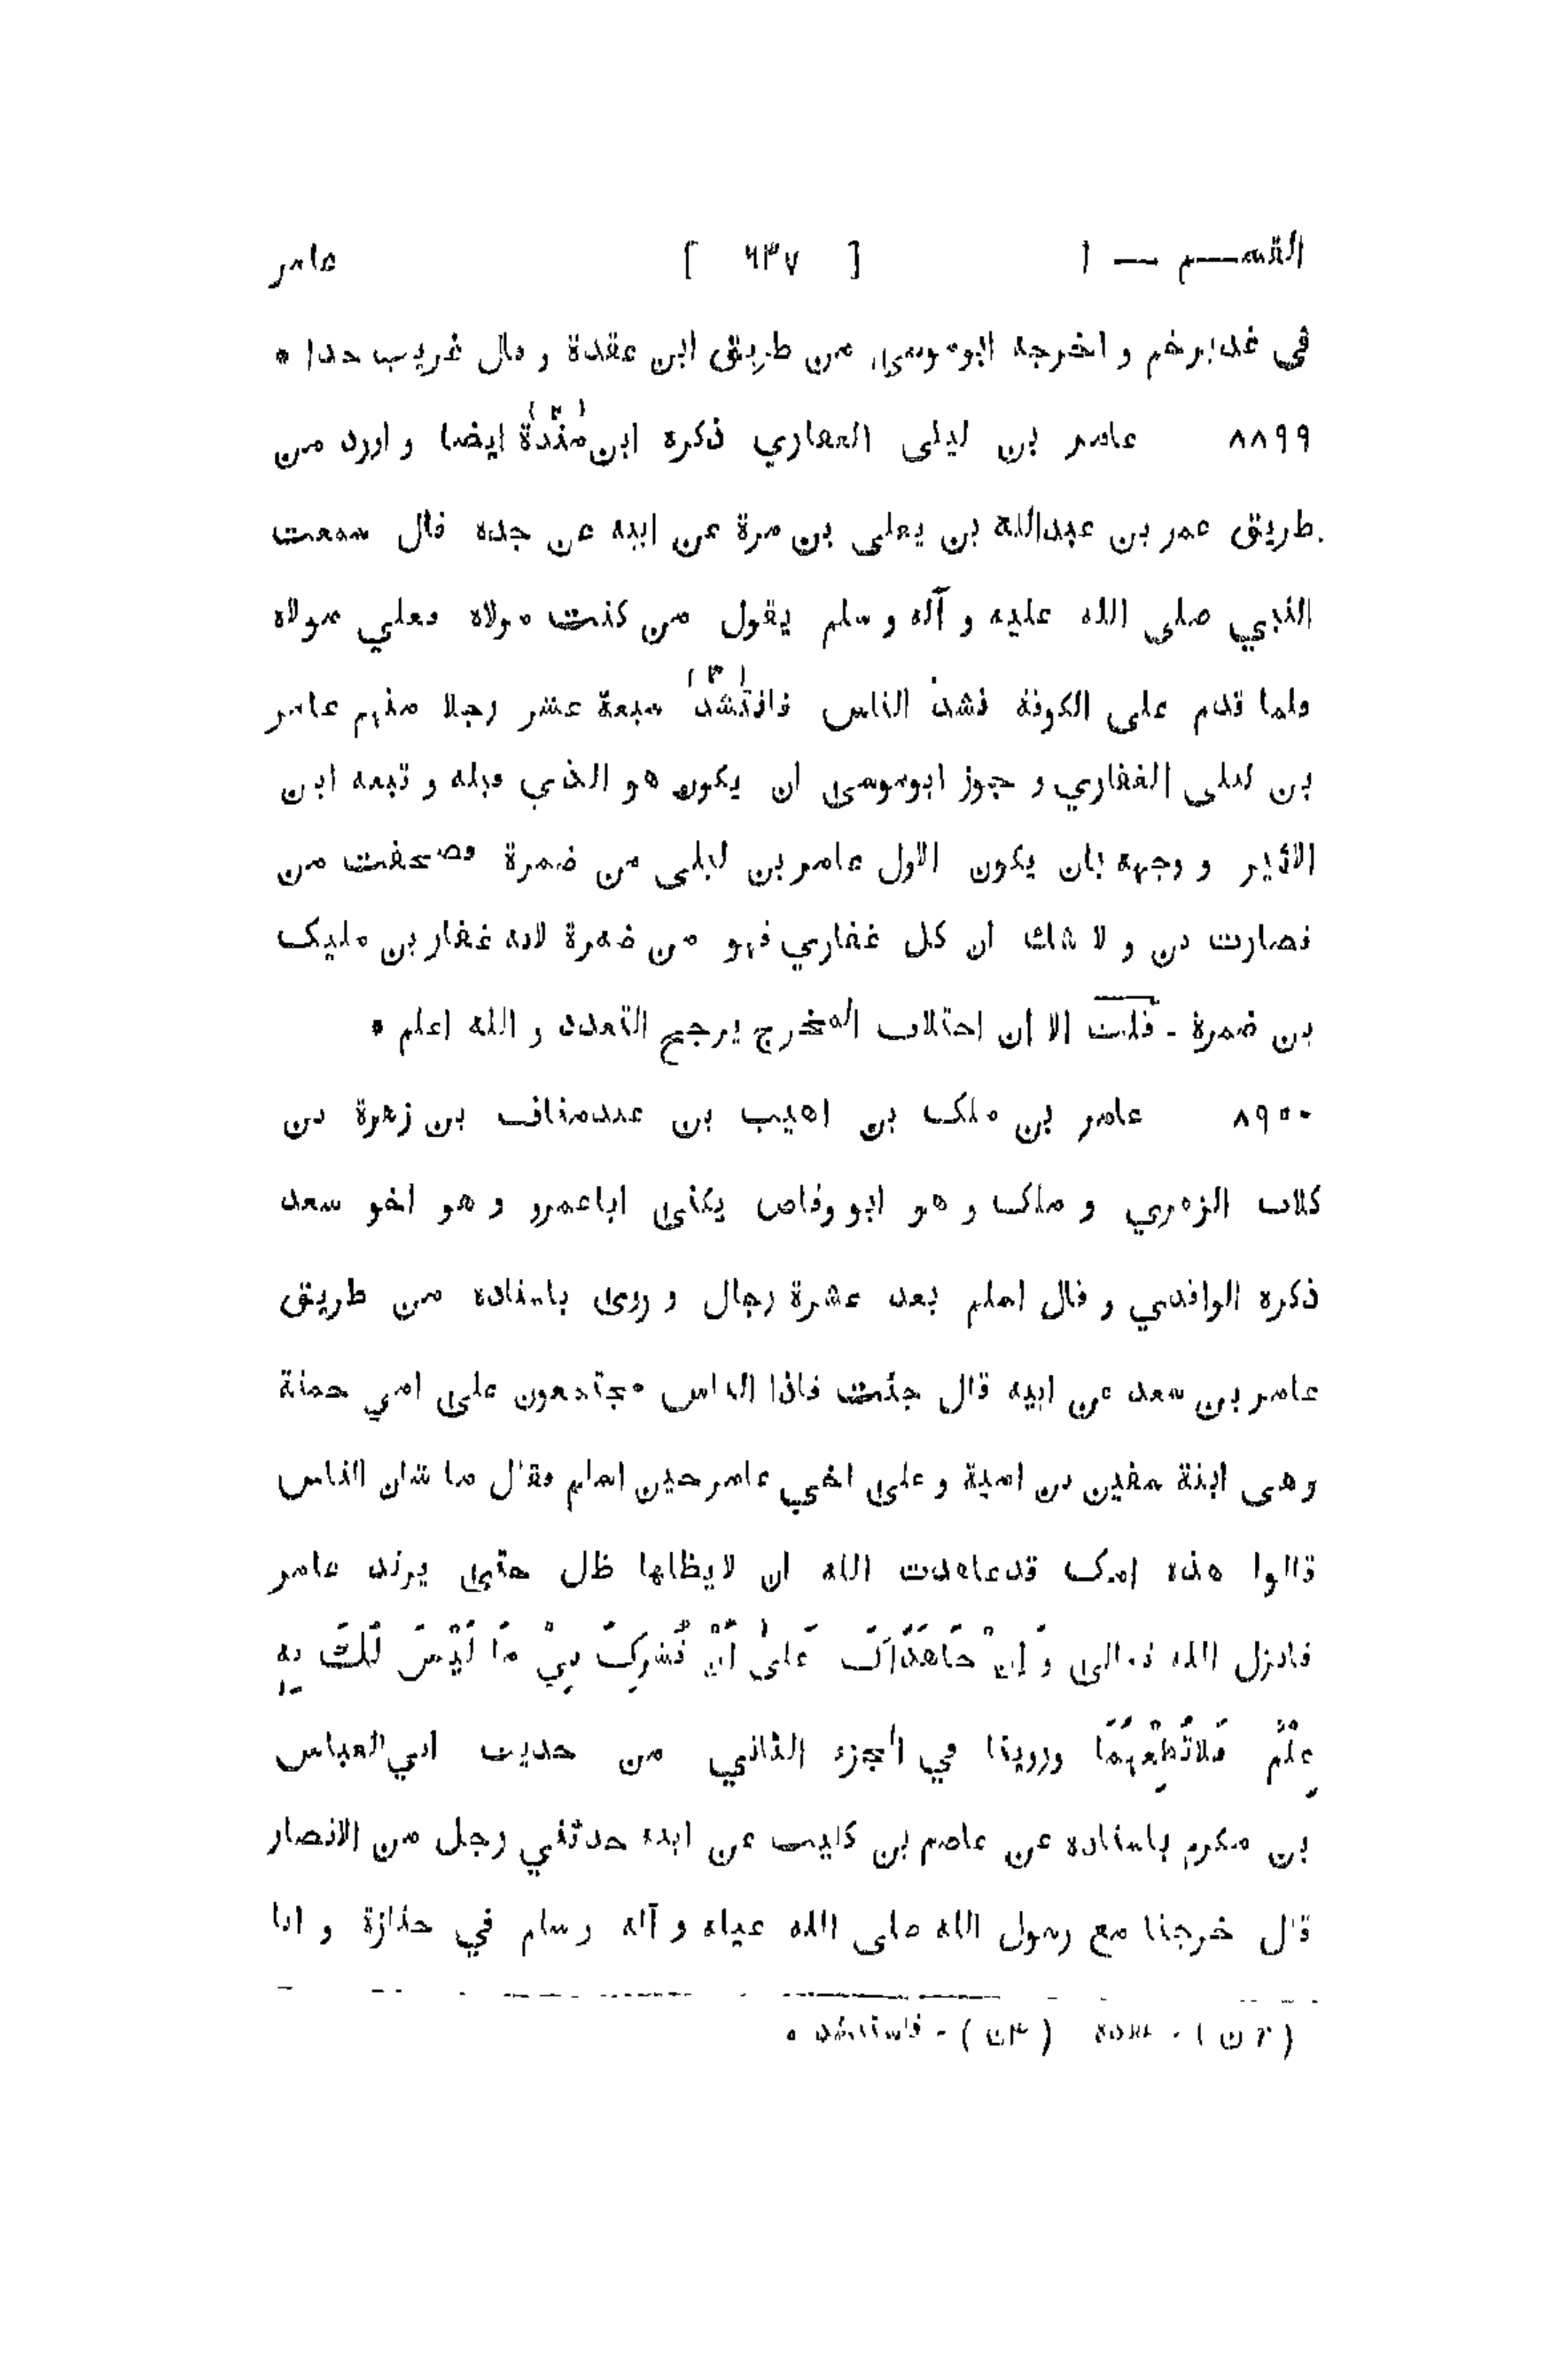 القســم — ١ [ ٦٣٧ ] عامر
في غديرخم و اخرجه ابوموسى من طريق ابن عقدة و قال غريب جدا *
٨٨٩٩ عامر بن ليلى الغفاري ذكره ابن مَنْدَة (٢) ايضا و اورد من
طريق عمر بن عبدالله بن يعلى بن مرة عن ابيه عن جده قال سمعت
النبي صلى الله عليه و آله و سلم يقول من كنت مولاه فعلي مولاه
فلما قدم على الكوفة نشد الناس فانتشد (٣) سبعة عشر رجلا منهم عامر
بن ليلى الغفاري و جوز ابوموسى ان يكون هو الذي قبله و تبعه ابن
الاثير و وجهه بان يكون الاول عامر بن ليلى من ضمرة فصحفت من
فصارت بن و لا شك ان كل غفاري فهو من ضمرة لانه غفار بن مليک
بن ضمرة - قلت الا ان اختلاف المخرج يرجح التعدد و الله اعلم *
٨٩٠٠ عامر بن ملک بن اهيب بن عبدمناف بن زهرة بن
كلاب الزهري و ملک و هو ابو وقاص يكنى اباعمرو و هو اخو سعد
ذكره الواقدي و قال اسلم بعد عشرة رجال و روى باسناده من طريق
عامر بن سعد عن ابيه قال جئت فاذا الناس مجتمعون على امي حمنة
و هى ابنة سفين بن امية و على اخي عامر حين اسلم فقال ما شان الناس
قالوا هذه امک قدعاهدت الله ان لايظلها ظل حتى يرتد عامر
فانزل الله تعالى وَ اِنْ جَاهَدَاكَ عَلىٰ اَنْ تُشْرِكَ بِيْ مَا لَيْسَ لَكَ بِهٖ
عِلْمٌ فَلَاتُطِعْهُمَا وروينا في الجزء الثاني من حديث ابي العباس
بن مكرم باسناده عن عاصم بن كليب عن ابيه حدثني رجل من الانصار
قال خرجنا مع رسول الله صلى الله عليه و آله و سلم في جنازة و انا
(٢ن) - عقدة (٣ن) - فاستنشد *